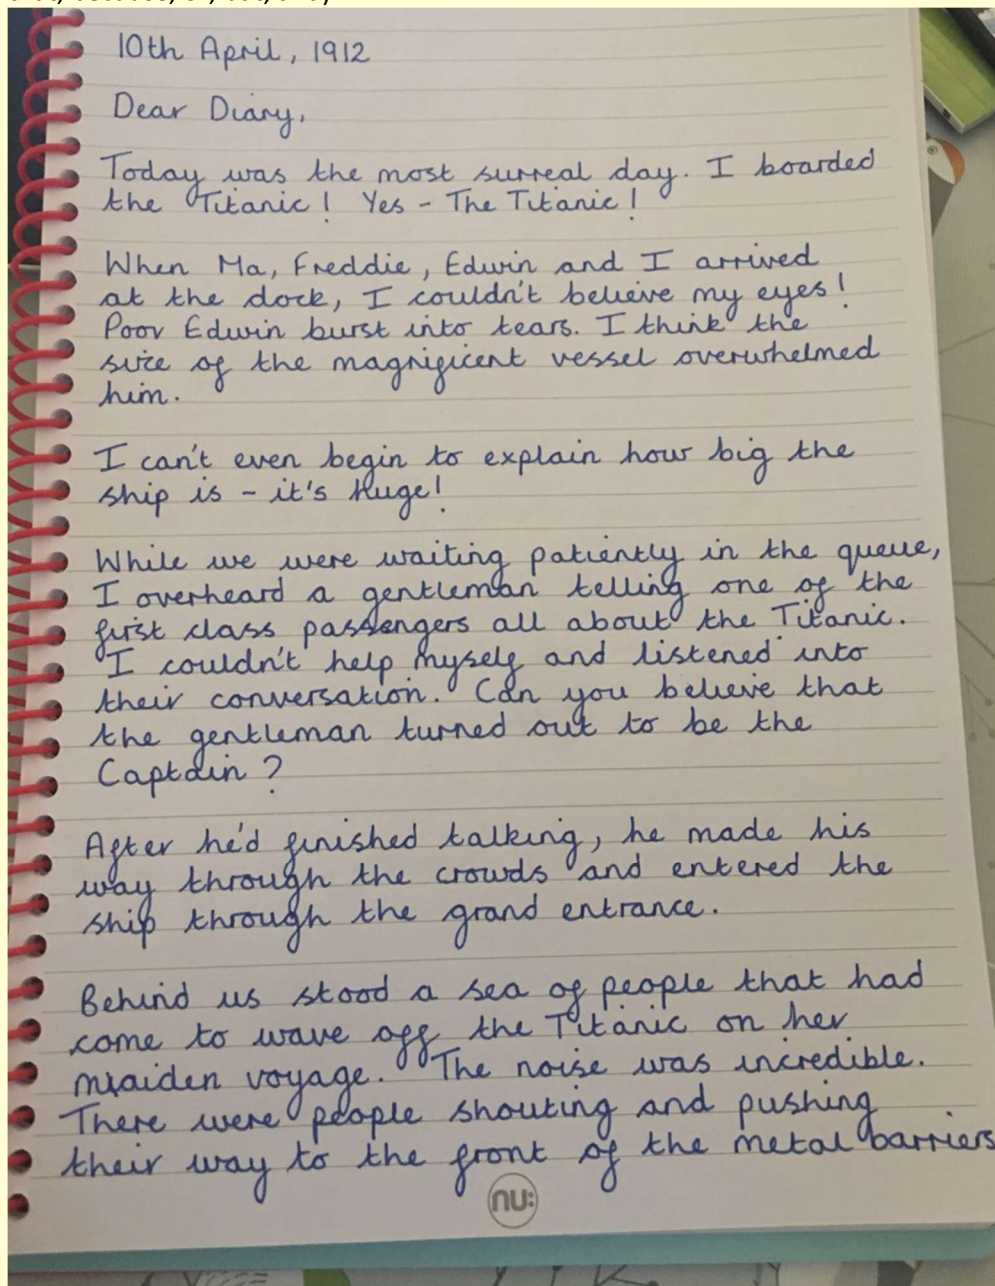 10th April, 1912
Dear Diary,
Today was the most surreal day. I boarded
the Titanic! Yes - The Titanic!
When Ma, Freddie, Edwin and I arrived
at the dock, I couldn't believe my eyes!
Poor Edwin burst into tears. I think the
size of the magnificent vessel overwhelmed
him.
I can't even begin to explain how big the
ship is - it's huge!
While we were waiting patiently in the queue,
I overheard a gentleman telling one of the
first class passengers all about the Titanic.
I couldn't help myself and listened into
their conversation. Can you believe that
the gentleman turned out to be the
Captain?
After he'd finished talking, he made his
way through the crowds and entered the
ship through the grand entrance.
Behind us stood a sea of people that had
come to wave off the Titanic on her
maiden voyage. The noise was incredible.
There were people shouting and pushing
their way to the front of the metal barriers
nu: